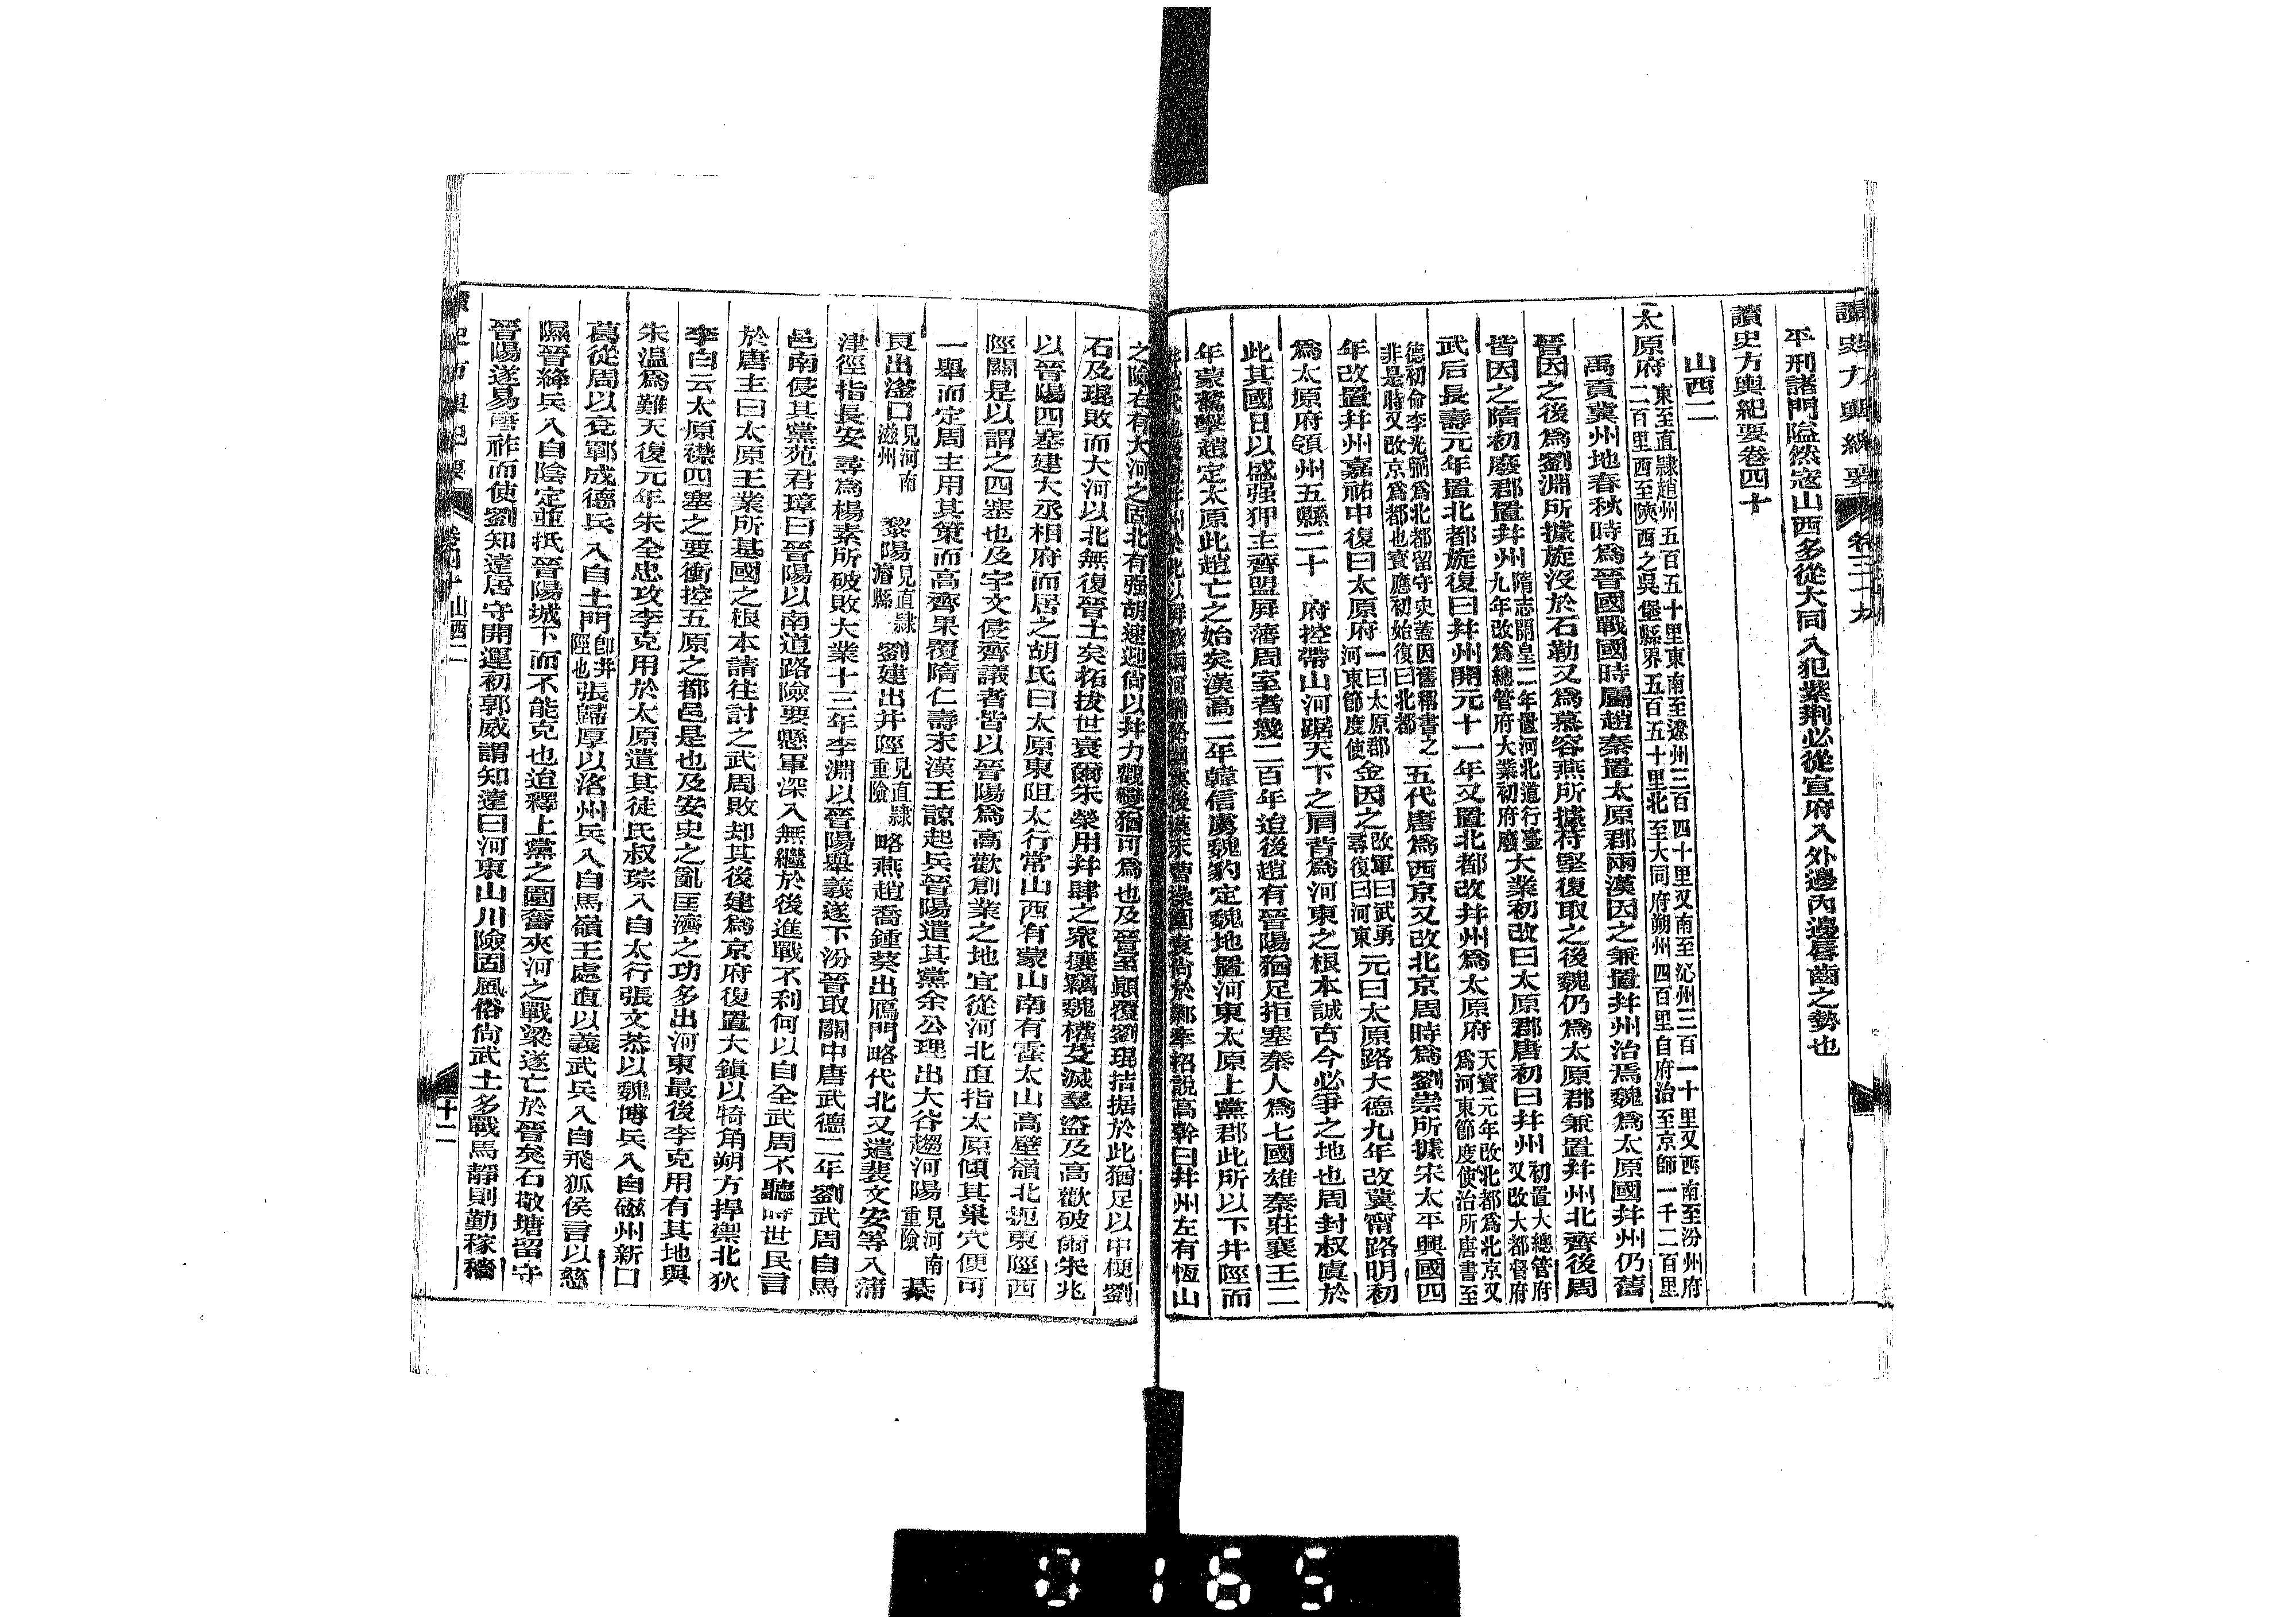 讀史方輿紀要 卷三十九
平刑諸門隘然寇山西多從大同入犯紫荆必從宣府入外邊內邊脣齒之勢也
讀史方輿紀要卷四十
山西二
太原府東至直隷趙州五百五十里東南至遼州三百四十里又南至沁州三百一十里又西南至汾州府二百里西至陝西之吳堡縣界五百五十里北至大同府朔州四百里自府治至京師一千二百里
禹貢冀州地春秋時爲晉國戰國時屬趙秦置太原郡兩漢因之兼置幷州治焉魏爲太原國幷州仍舊
晉因之後爲劉淵所據旋沒於石勒又爲慕容燕所據苻堅復取之後魏仍爲太原郡兼置幷州北齊後周
皆因之隋初廢郡置幷州隋志開皇二年置河北道行臺九年改爲總管府大業初府廢大業初改曰太原郡唐初曰幷州初置大總管府又改大都督府
武后長壽元年置北都旋復曰幷州開元十一年又置北都改幷州爲太原府天寶元年改北都爲北京又爲河東節度使治所唐書至
德初命李光弼爲北都留守史蓋因舊稱書之非是時又改京爲都也寶應初始復曰北都五代唐爲西京又改北京周時爲劉崇所據宋太平興國四
年改置幷州嘉祐中復曰太原府一曰太原郡河東節度使金因之改軍曰武勇尋復曰河東元曰太原路大德九年改冀甯路明初
爲太原府領州五縣二十 府控帶山河踞天下之肩背爲河東之根本誠古今必爭之地也周封叔虞於
此其國日以盛强狎主齊盟屏藩周室者幾二百年迨後趙有晉陽猶足拒塞秦人爲七國雄秦莊襄王二
年蒙驁擊趙定太原此趙亡之始矣漢高二年韓信虜魏豹定魏地置河東太原上黨郡此所以下井陘而
後漢末曹操圍袁尚於鄴牽招說高幹曰幷州左有恆山
之險右有大河之固北有强胡速迎尚以幷力觀變猶可爲也及晉室顛覆劉琨拮据於此猶足以中梗劉
石及琨敗而大河以北無復晉土矣拓拔世衰爾朱榮用幷肆之衆攘竊魏權芟滅羣盜及高歡破爾朱兆
以晉陽四塞建大丞相府而居之胡氏曰太原東阻太行常山西有蒙山南有霍太山高壁嶺北扼東陘西
陘關是以謂之四塞也及宇文侵齊議者皆以晉陽爲高歡創業之地宜從河北直指太原傾其巢穴便可
一舉而定周主用其策而高齊果覆隋仁壽末漢王諒起兵晉陽遣其黨余公理出大谷趨河陽見河南重險綦
良出滏口見河南滋州 黎陽見直隷濬縣 劉建出井陘見直隷重險 略燕趙喬鍾葵出鴈門略代北又遣裴文安等入蒲
津徑指長安尋爲楊素所破敗大業十三年李淵以晉陽舉義遂下汾晉取關中唐武德二年劉武周自馬
邑南侵其黨苑君璋曰晉陽以南道路險要懸軍深入無繼於後進戰不利何以自全武周不聽時世民言
於唐主曰太原王業所基國之根本請往討之武周敗却其後建爲京府復置大鎭以犄角朔方捍禦北狄
李白云太原襟四塞之要衝控五原之都邑是也及安史之亂匡濟之功多出河東最後李克用有其地與
朱溫爲難天復元年朱全忠攻李克用於太原遣其徒氏叔琮入自太行張文恭以魏博兵入自磁州新口
葛從周以兗鄆成德兵入自土門卽井陘也張歸厚以洺州兵入自馬嶺王處直以義武兵入自飛狐侯言以慈
隰晉絳兵入自陰定並抵晉陽城下而不能克也迨釋上黨之圍奮夾河之戰梁遂亡於晉矣石敬塘留守
晉陽遂易唐祚而使劉知遠居守開運初郭威謂知遠曰河東山川險固風俗尙武士多戰馬靜則勤稼穡
讀史方輿紀要 卷四十 山西二 十二
0165